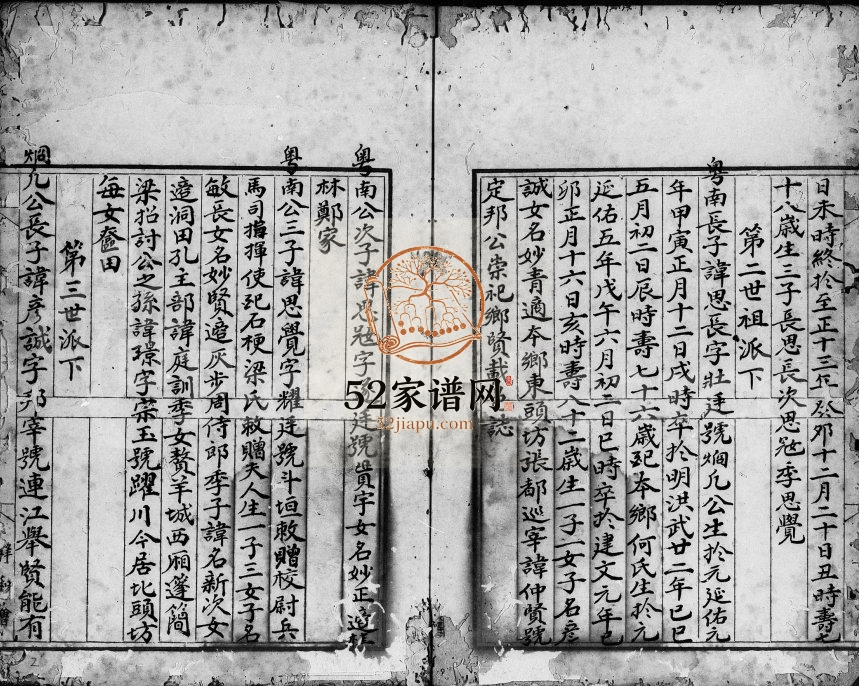 日未時終於至正十三年癸卯十二月二十日丑時壽七
十八歲生三子長思長次思㓂季思覺
第二世祖派下
粤南長子諱思長字壯廷號烱凢公生於元延佑元
年甲寅正月十二日戌時卒於明洪武廿二年己巳
五月初二日辰時壽七十六歲配本鄉何氏生於元
延佑五年戊午六月初二日巳時卒於建文元年己
卯正月十六日亥時壽八十二歲生一子一女子名彦
誠女名妙青適本鄉東頭坊張都巡宰諱仲賢號
定邦公崇祀鄉賢載 誌
粤南公次子諱思 字 廷號貴宇女名妙正適
林鄭家
粤南公三子諱思覺字耀廷號斗垣敕贈校尉兵
馬司指揮使配石梗梁氏敕贈夫人生一子三女子名
敏長女名妙賢適灰步周侍郎季子諱名新次女
適洞田孔主部諱庭訓季女嫯羊城西厢蓬簡
梁招討公之孫諱璟字宗玉號躍川今居北頭坊
每女奩田
第三世派下
烱凢公長子諱彦誠字邦宰號連江舉賢能有
52家谱网
52jiapu.com
2